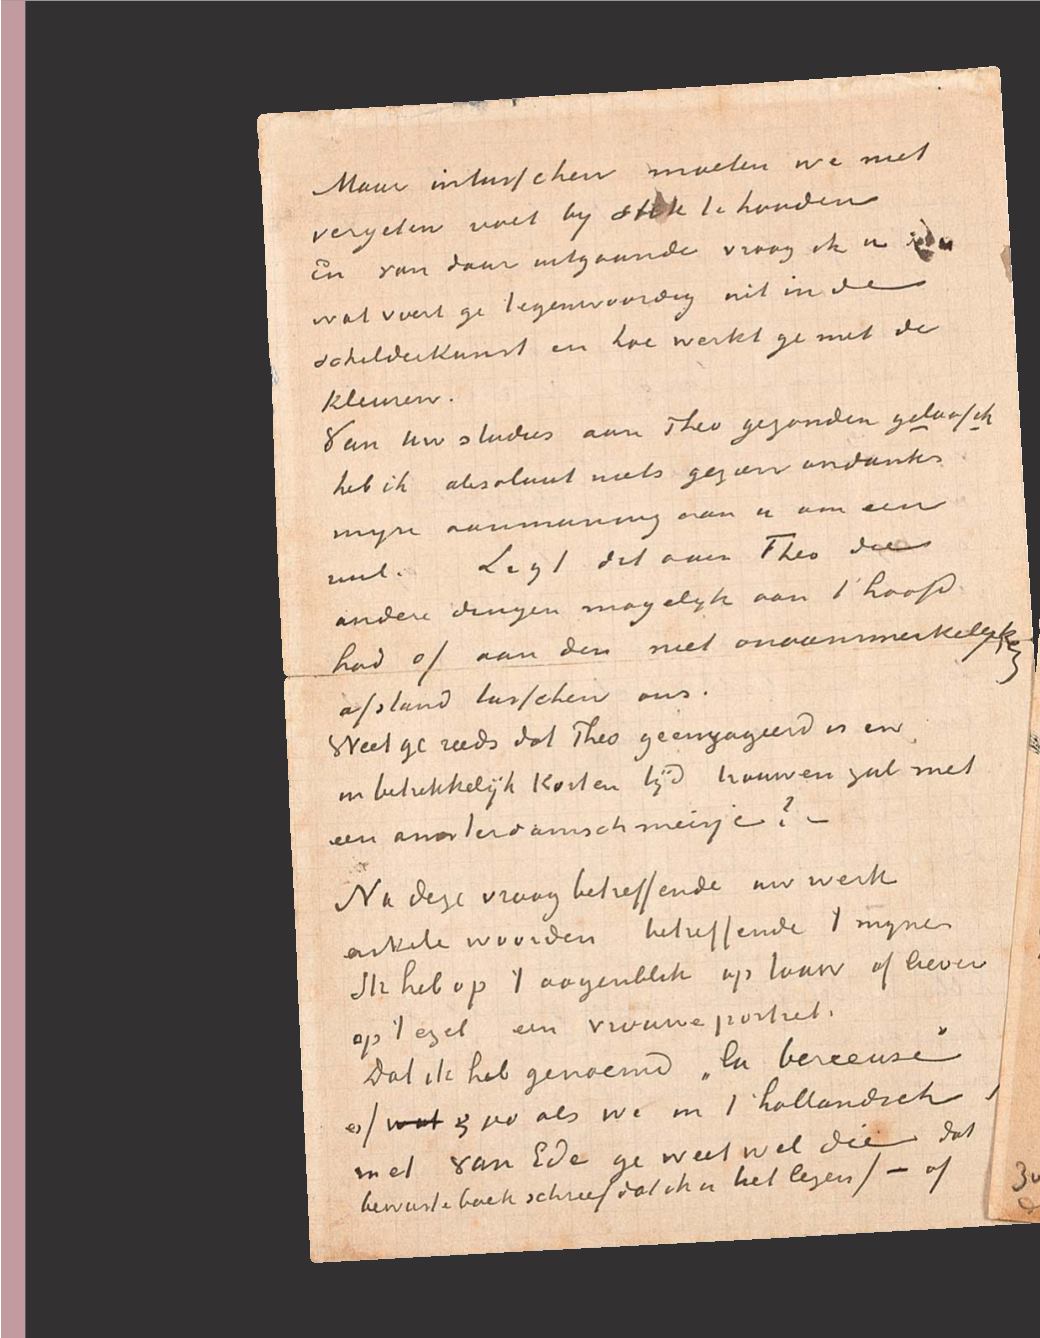 Maar intusschen moeten we niet
vergeten voet by stuk te houden
En van daar uitgaande vraag ik u
wat voert ge tegenwoordig uit in de
schilderkunst en hoe werkt ge met de
kleuren.
Van uw studies aan Theo gezonden geloof ik
heb ik absoluut niets gezien ondanks
myn aanmaning aan u om een
ruil. Legt dit aan Theo die
andere dingen mogelyk aan 't hoofd
had of aan den niet onaanmerkelyken
afstand tusschen ons.
Weet ge reeds dat Theo geengageerd is en
in betrekkelijk korten tijd trouwen zal met
een amsterdamsch meisje? –
Na deze vraag betreffende uw werk
enkele woorden betreffende 't myne
Ik heb op 't oogenblik op touw of liever
op 't ezel een vrouweportret.
Dat ik heb genoemd „la berceuse”
of wat zoo als we in 't hollandsch
met van Eede ge weet wel die dat
bewuste boek schreef dat ik u liet lezen – of
3